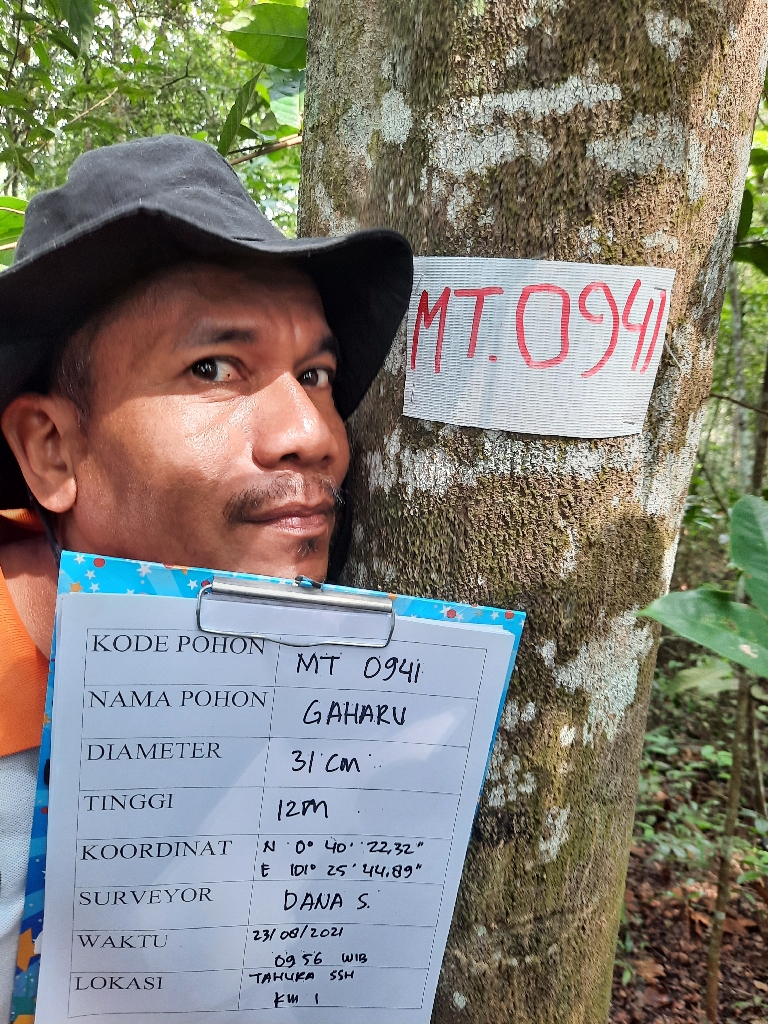 MT.0941
KODE POHON MT 0941
NAMA POHON GAHARU
DIAMETER 31 cm
TINGGI 12m
KOORDINAT N 0° 40' 22,32"
E 101° 25' 44,89"
SURVEYOR DANA S.
WAKTU 23/08/2021
09 56 WIB
LOKASI TAHURA SSH
KM 1